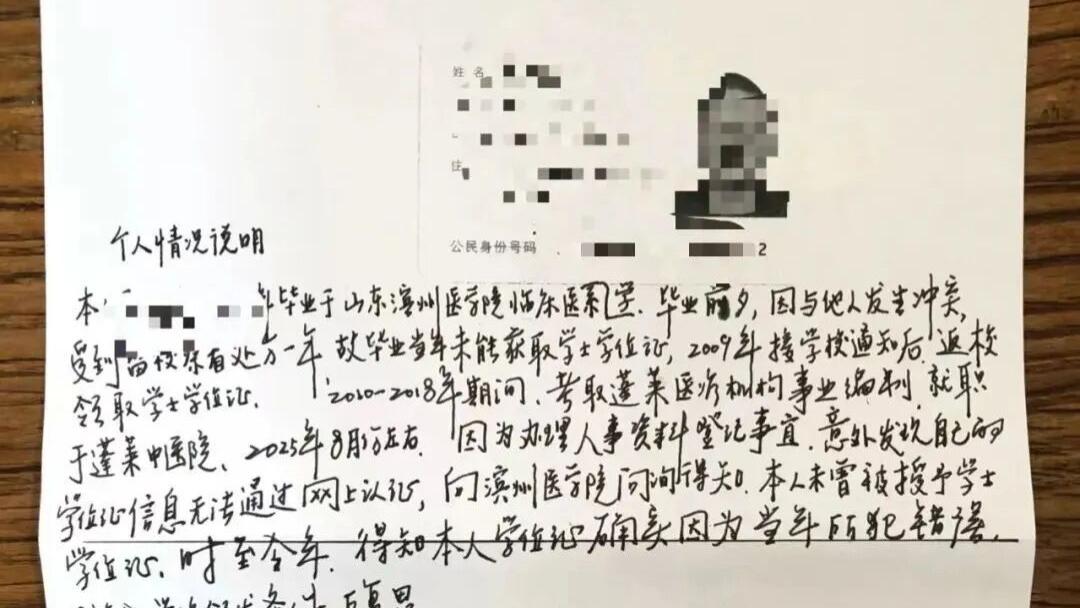 姓 名
住
公民身份号码 2
个人情况说明
本 年毕业于山东滨州医学院临床医系学.毕业前夕,因与他人发生冲突,
受到留校察看处分一年 故毕业当年未能获取学士学位证,2009年接学校通知后.返校
领取学士学位证. 2010-2018年期间.考取蓬莱医疗机构事业编制.就职
于蓬莱中医院、2025年8月份左右.因为办理人事资料登记事宜.意外发现自己的
学位证信息无法通过网上认证,向滨州医学院问询得知.本人未曾被授予学士
学位证.时至今年.得知本人学位证确实因为当年所犯错误.